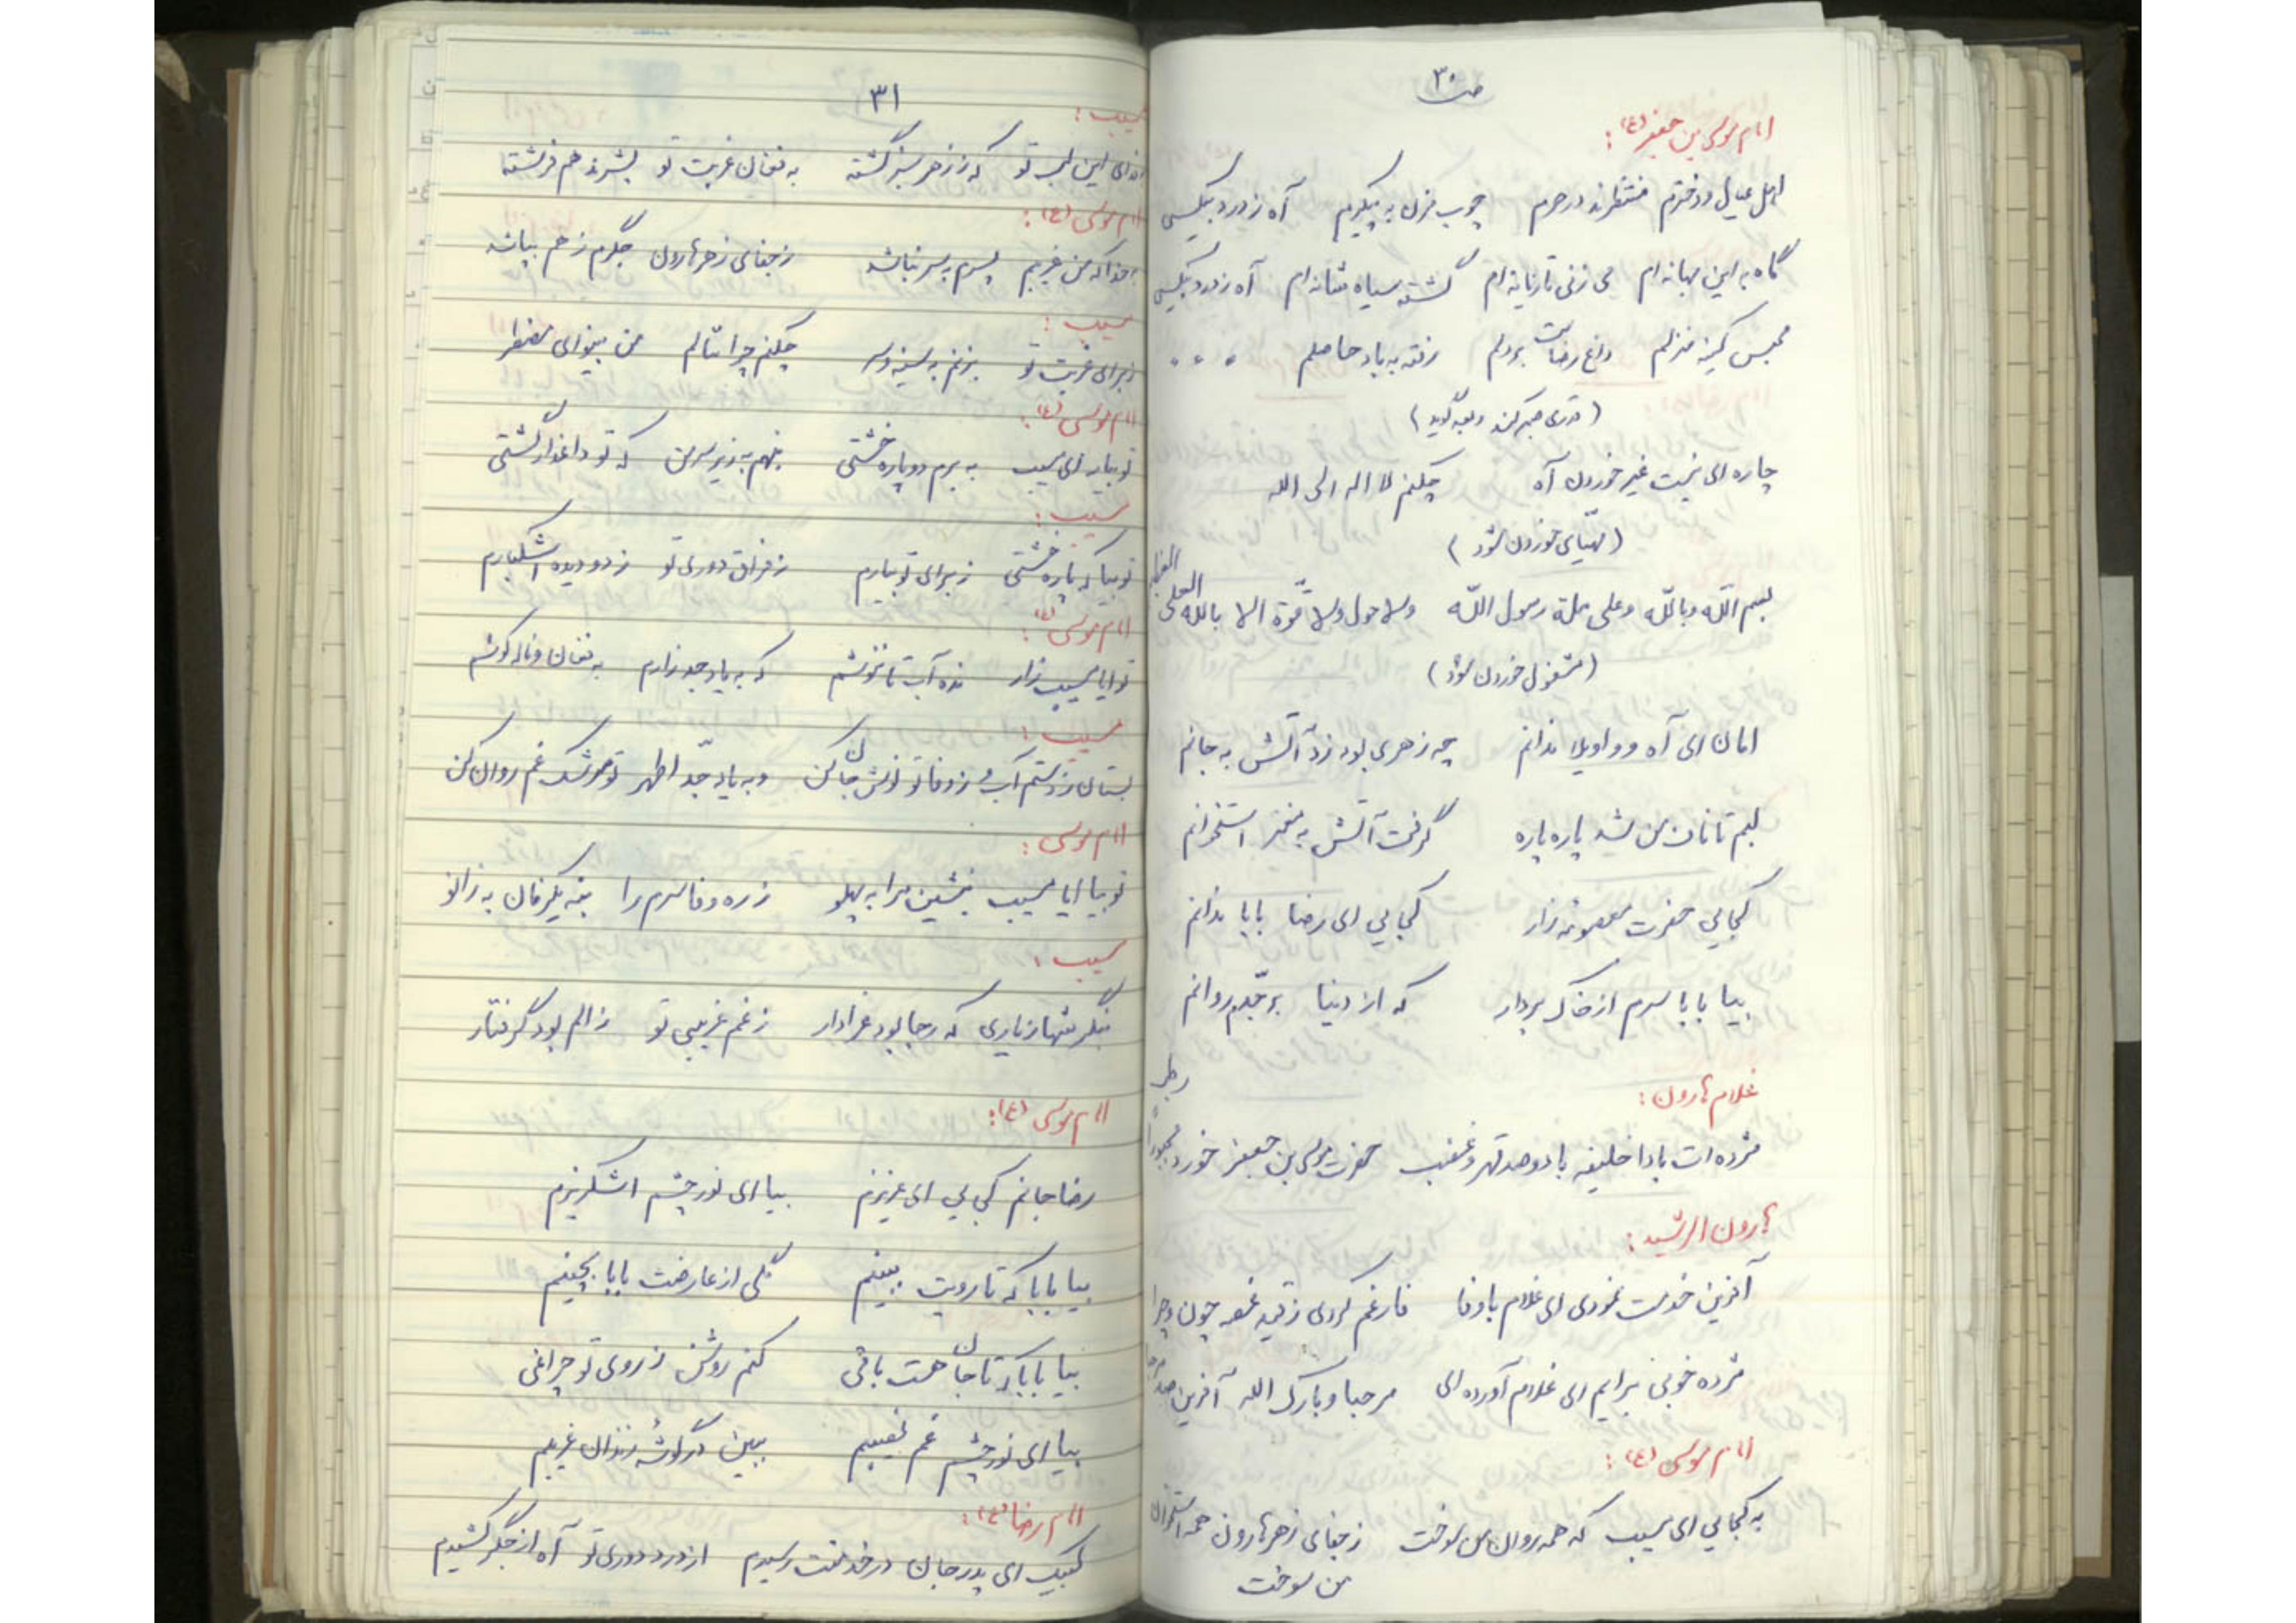 ص ۳۰
امام موسی بن جعفر (ع):
اهل عیال و دخترم منتظرند در حرم چوب مزن به پیکرم آه ز درد بیکسی
گاه به این بهانه ام می زنی تازیانه ام گشته سیاه شانه ام آه ز درد بیکسی
محبس کینه منزلم داغ رضاست بر دلم رفته به باد حاصلم ...
(قدری صبر کند و بعد گوید)
چاره ای نیست غیر خوردن آه چکنم لا اله الی الله
(مهیّای خوردن شود)
بسم اللّه و باللّه و علی ملة رسول اللّه ولا حول ولا قوّة الا بالله العلی
(مشغول خوردن شود)
امان ای آه و واویلا ندانم چه زهری بود زد آتش به جانم
لبم تا نان من شد پاره پاره گرفت آتش به مغز استخوانم
کجایی حضرت معصومه زار کجایی ای رضا بابا ندانم
بیا بابا سرم از خاک بردار که از دنیا بر جدم روانم
غلام هارون:
مژده ات بادا خلیفه با دو صد قهر و غضب حضرت موسی بن جعفر خورد
هارون الرشید:
آفرین خدمت نمودی ای غلام با وفا فارغم کردی ز قید غصه چون و چرا
مژده خوبی برایم ای غلام آورده ای مرحبا و بارک الله آفرین
امام موسی (ع):
به کجایی ای مسیب که همه روان من سوخت ز جفای زهر هارون همه استخوان
من سوخت
۳۱
مسیب:
این لب تو که ز زهر سبز گشته به فغان غربت تو بشرند هم فرشته
امام موسی (ع):
بخدا که من غریبم پسرم به سر نباشد ز جفای زهر هارون جگرم ز هم بپاشد
مسیب:
ز برای غربت تو بزنم به سینه و سر چکنم چرا ننالم من بینوای مضطر
امام موسی (ع):
تو بیا ای مسیب به برم دو پاره خشتی بنهم به زیر سر من که تو داغدار گشتی
مسیب:
تو بیا که پاره خشتی ز برای تو بیارم ز فراق دوری تو ز دو دیده اشکبارم
امام موسی (ع):
تو ایا مسیب زار بده آب تا بنوشم که به یاد جد زارم به فغان و ناله کوشم
مسیب:
بستان ز دستم آب و ز وفا تو نوش جان کن و به یاد جدّ اطهر تو سرشک غم روان کن
امام موسی:
تو بیا ایا مسیب بنشین مرا به پهلو ز ره وفا سرم را بنه یکزمان به زانو
مسیب:
بنگر شها ز یاری که رجا بود عزادار ز غم غریبی تو ز الم بود گرفتار
امام موسی (ع):
رضا جانم کجایی ای عزیزم بیا ای نور چشم اشکریزم
بیا بابا که تا رویت ببینم گلی از عارضت بابا بچینم
بیا بابا که تا جان هست باقی کنم روشن ز روی تو چراغی
بیا ای نور چشم غم نصیبم ببین در گوشه زندان غریبم
امام رضا (ع):
لبیک ای پدر جان در خدمتت رسیدم از درد دوری تو آه از جگر کشیدم